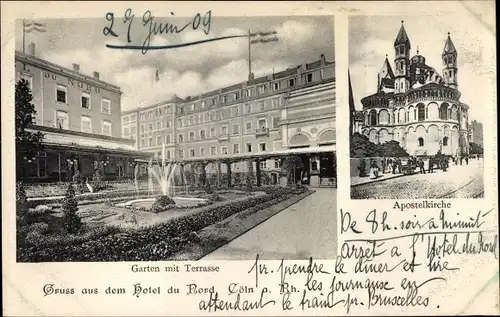 29 Juin 09
Apostelkirche
De 8h. soir à minuit
Arrêt à l'Hotel du Nord
Garten mit Terrasse
pr. prendre le dîner et lire
Gruss aus dem Hotel du Nord, Cöln a. Rh.
les journaux en
attendant le train pr. Bruxelles.